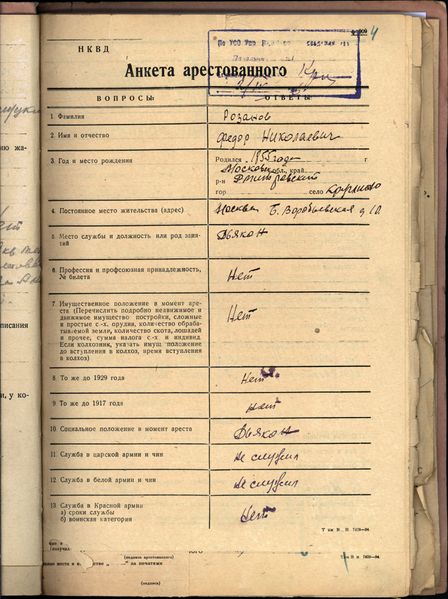 4
НКВД
Анкета арестованного
ВОПРОСЫ: ОТВЕТЫ:
1 Фамилия Розанов
2 Имя и отчество Федор Николаевич
3 Год и место рождения Родился г
Москов обл. край
р-н Дмитровский
гор село
4 Постоянное место жительства (адрес) Москва Б. Воробьевская д 10
5 Место службы и должность или род заня-
тий Дьякон
6 Профессия и профсоюзная принадлежность,
№ билета Нет
7 Имущественное положение в момент аре-
ста (Перечислить подробно недвижимое и
движимое имущество постройки, сложные
и простые с.-х. орудия, количество обраба-
тываемой земли, количество скота, лошадей
и прочее, сумма налога с.-х и индивид
Если колхозник, указать имущ положение
до вступления в колхоз, время вступления
в колхоз) Нет
8 То же до 1929 года Нет
9 То же до 1917 года Нет
10 Социальное положение в момент ареста Дьякон
11 Служба в царской армии и чин Не служил
12 Служба в белой армии и чин Не служил
13 Служба в Красной армии
а) сроки службы
б) воинская категория Нет
(подпись арестованного)
за печатями
(подпись)